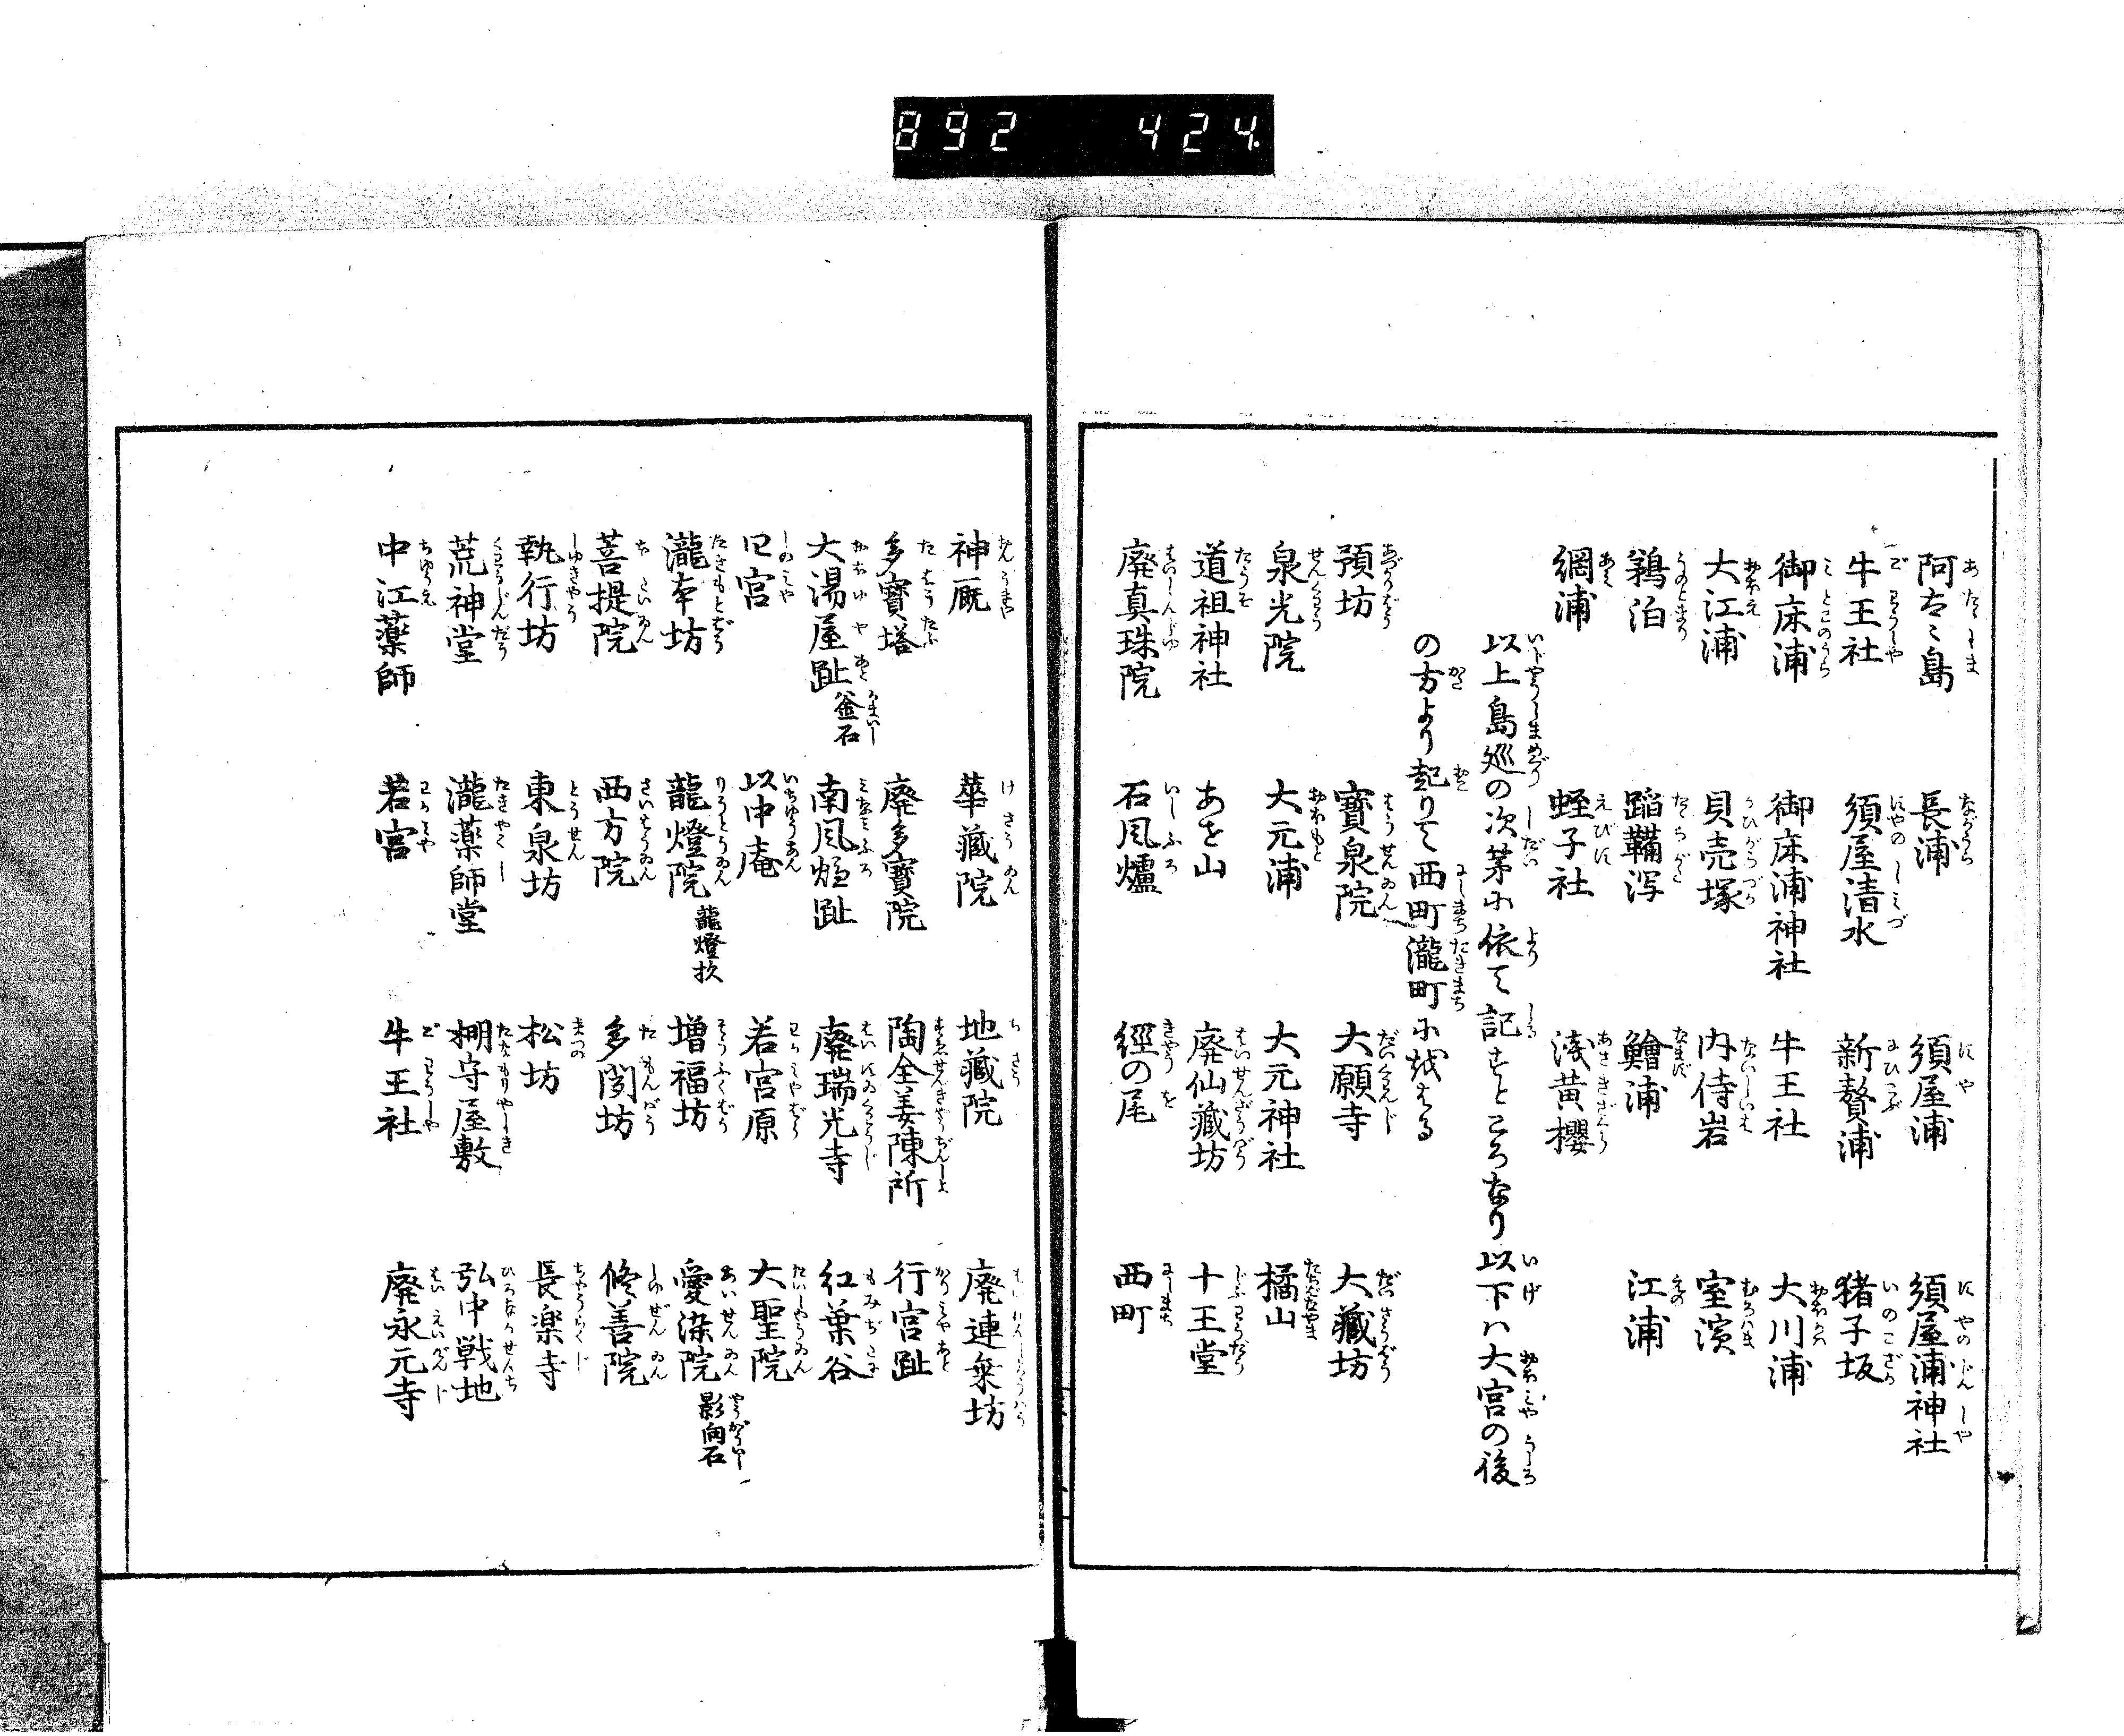 892 424.
阿古々島 長浦 須屋浦 須屋浦神社
牛王社 須屋清水 新贅浦 猪子坂
御床浦 御床浦神社 牛王社 大川浦
大江浦 貝売塚 内侍岩 室濱
鵜泊 蹈鞴潟 鱠浦 江浦
網浦 蛭子社 浅黄櫻
以上島廻の次第に依て記すところなり以下ハ大宮の後
の方より起りて西町瀧町に越はる
預坊 寶泉院 大願寺 大藏坊
泉光院 大元浦 大元神社 橘山
道祖神社 あを山 廃仙藏坊 十王堂
廃真珠院 石風爐 經の尾 西町
神厩 華藏院 地藏院 廃連乗坊
多寶塔 廃多寶院 陶全姜陳所 行宮趾
大湯屋趾 釜石 南風爐趾 廃瑞光寺 紅葉谷
四宮 以中庵 若宮原 大聖院
瀧本坊 龍燈院 龍燈杉 増福坊 愛染院 影向石
菩提院 西方院 多聞坊 修善院
執行坊 東泉坊 松坊 長楽寺
荒神堂 瀧薬師堂 棚守屋敷 弘中戦地
中江薬師 若宮 牛王社 廃永元寺